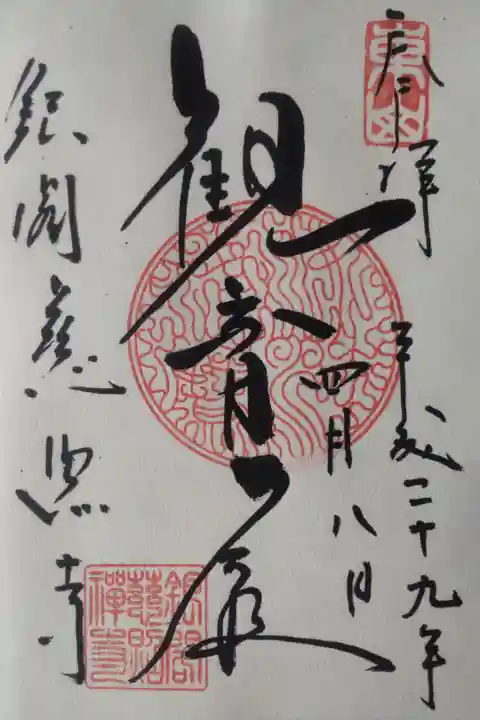 奉拝
東山
平成二十九年
四月八日
観音殿
銀閣慈照寺
銀閣
慈照
禅寺